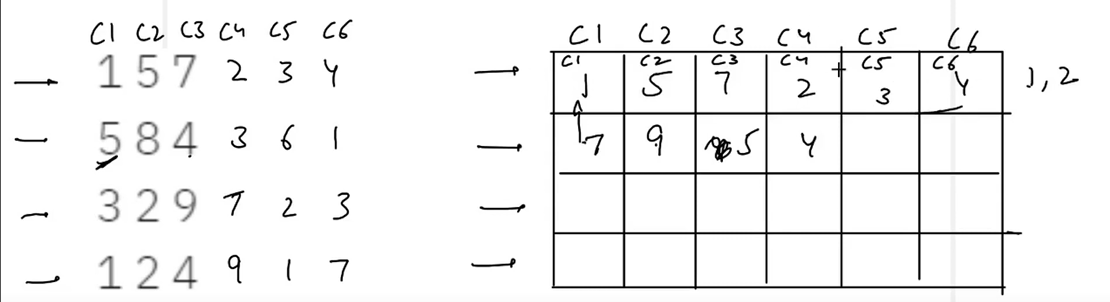 C1 C2 C3 C4 C5 C6
1 5 7 2 3 4
5 8 4 3 6 1
3 2 9 7 2 3
1 2 4 9 1 7
C1 C2 C3 C4 C5 C6
C1 C2 C3 C4 C5 C6
1 5 7 2 3 4 1,2
7 9 5 4